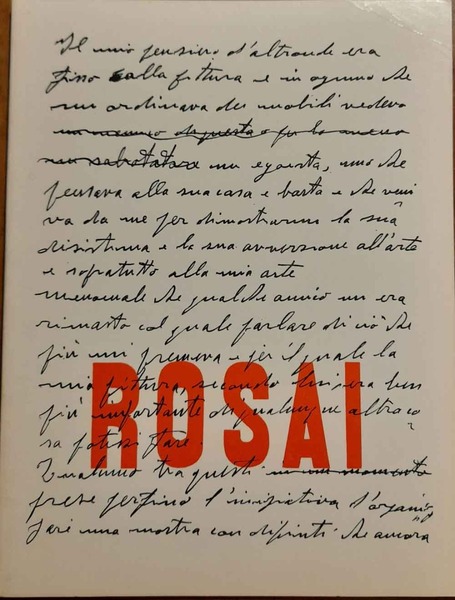 Il mio pensiero d'altronde era
fisso alla pittura e in ognuno che
mi ordinava dei mobili vedevo
un nemico di questa o per lo meno
un sabotatore un egoista, uno che
pensava alla sua casa e basta e che veni
va da me per dimostrarmi la sua
disistima e la sua avversione all'arte
e sopratutto alla mia arte
menomale che qualche amico mi era
rimasto col quale parlare di ciò che
più mi premeva e per il quale la
mia pittura, secondo lui, era ben
più importante di qualunque altra co
sa potessi fare.
ROSAI
Qualcuno tra questi in un momento
prese perfino l'iniziativa d'organiz
zare una mostra con dipinti che ancora